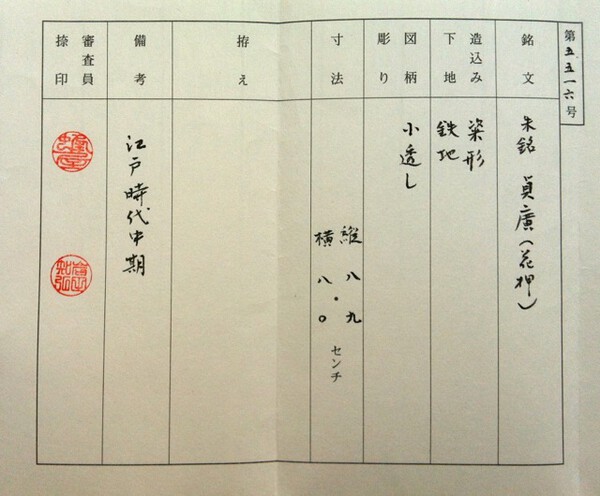 第五五一六号
銘文
朱銘 貞廣(花押)
造込み
下地
粢形
鉄地
図柄
彫り
小透し
寸法
縦 八・九
横 八・〇
センチ
拵え
備考
江戸時代中期
審査員
捺印